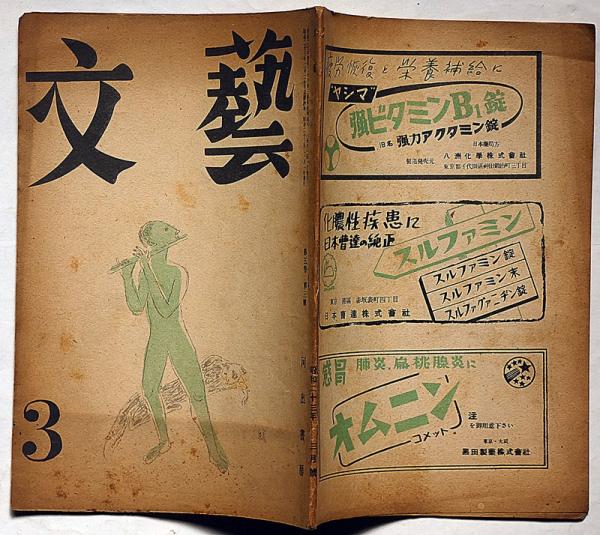 文藝
第五巻 第三號
3
河出書房
昭和二十三年 三月號
疲労恢復と栄養補給に
"ヤシマ"
強ビタミンB₁錠
旧名 強力アクタミン錠
日本薬局方
製造発売元
八洲化學株式會社
東京都千代田區神田鍛冶町三丁目
化膿性疾患に
日本曹達の純正
スルファミン
スルファミン錠
スルファミン末
スルファグアニヂン錠
東京 港區 赤坂表町四丁目
日本曹達株式會社
感冒 肺炎.扁桃腺炎に
オムニン
コメット
注
を御用意下さい
東京・大阪
黒田製藥株式會社